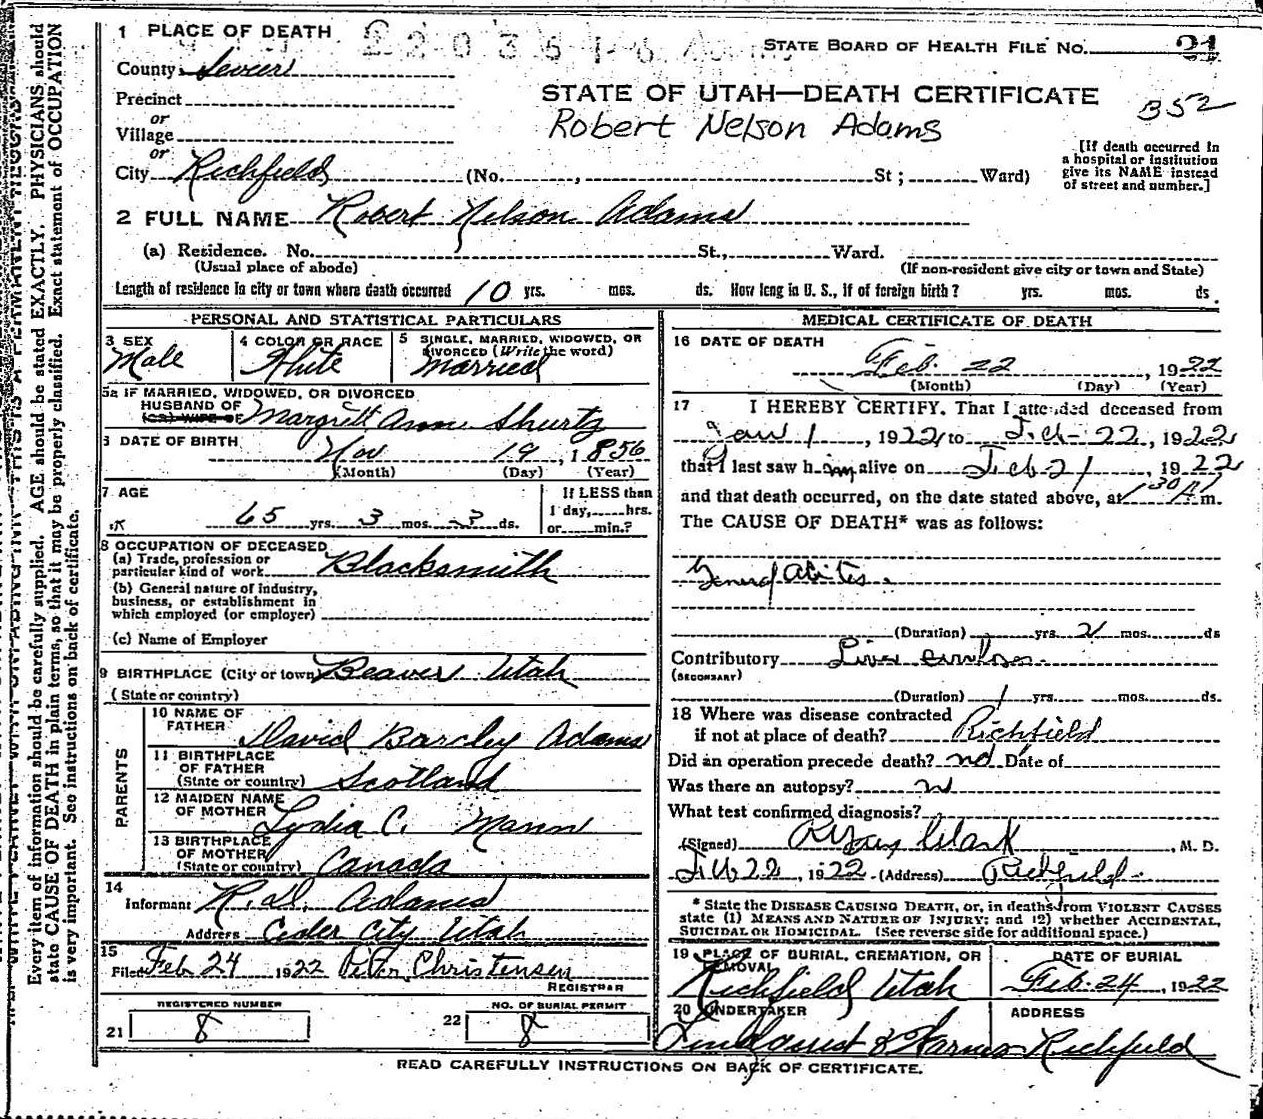 1 PLACE OF DEATH
STATE BOARD OF HEALTH FILE No. 21
County Sevier
STATE OF UTAH—DEATH CERTIFICATE
352
Precinct
or
Village
Robert Nelson Adams
[If death occurred in
a hospital or institution
give its NAME instead
of street and number.]
or
City Richfield (No. , St ; Ward)
2 FULL NAME Robert Nelson Adams
(a) Residence. No. St., Ward.
(Usual place of abode) (If non-resident give city or town and State)
Length of residence in city or town where death occurred 10 yrs. mos. ds. How long in U. S., if of foreign birth? yrs. mos. ds.
PERSONAL AND STATISTICAL PARTICULARS
3 SEX Male
4 COLOR OR RACE White
5 SINGLE, MARRIED, WIDOWED, OR
DIVORCED (Write the word)
Married
5a IF MARRIED, WIDOWED, OR DIVORCED
HUSBAND OF
(OR) WIFE OF Margrett Ann Shurtz
6 DATE OF BIRTH Nov 19, 1856
(Month) (Day) (Year)
7 AGE
65 yrs. 3 mos. 3 ds.
If LESS than
1 day, hrs.
or min.?
8 OCCUPATION OF DECEASED
(a) Trade, profession or
particular kind of work Blacksmith
(b) General nature of industry,
business, or establishment in
which employed (or employer)
(c) Name of Employer
9 BIRTHPLACE (City or town) Beaver Utah
(State or country)
PARENTS
10 NAME OF
FATHER David Barcley Adams
11 BIRTHPLACE
OF FATHER
(State or country) Scotland
12 MAIDEN NAME
OF MOTHER Lydia C. Mann
13 BIRTHPLACE
OF MOTHER
(State or country) Canada
14
Informant R. D. Adams
Address Ceder City Utah
15
Filed Feb 24 1922 Peter Christensen
REGISTRAR
REGISTERED NUMBER
21 8
NO. OF BURIAL PERMIT
22 8
MEDICAL CERTIFICATE OF DEATH
16 DATE OF DEATH
Feb. 22, 1922
(Month) (Day) (Year)
17 I HEREBY CERTIFY, That I attended deceased from
Jan 1, 1922 to Feb-22, 1922
that I last saw him alive on Feb 21, 1922
and that death occurred, on the date stated above, at 1 30 A m.
The CAUSE OF DEATH* was as follows:
General
(Duration) yrs. 2 mos. ds
Contributory Liver
(SECONDARY)
(Duration) 1 yrs. mos. ds.
18 Where was disease contracted
if not at place of death? Richfield
Did an operation precede death? no Date of
Was there an autopsy?
What test confirmed diagnosis?
(Signed) , M. D.
Feb 22, 1922 (Address) Richfield
* State the DISEASE CAUSING DEATH, or, in deaths from VIOLENT CAUSES
state (1) MEANS AND NATURE OF INJURY; and (2) whether ACCIDENTAL,
SUICIDAL OR HOMICIDAL. (See reverse side for additional space.)
19 PLACE OF BURIAL, CREMATION, OR
REMOVAL
Richfield Utah
DATE OF BURIAL
Feb. 24, 1922
20 UNDERTAKER
ADDRESS
Richfield
READ CAREFULLY INSTRUCTIONS ON BACK OF CERTIFICATE.
Every item of information should be carefully supplied. AGE should be stated EXACTLY. PHYSICIANS should
state CAUSE OF DEATH in plain terms, so that it may be properly classified. Exact statement of OCCUPATION
is very important. See instructions on back of certificate.